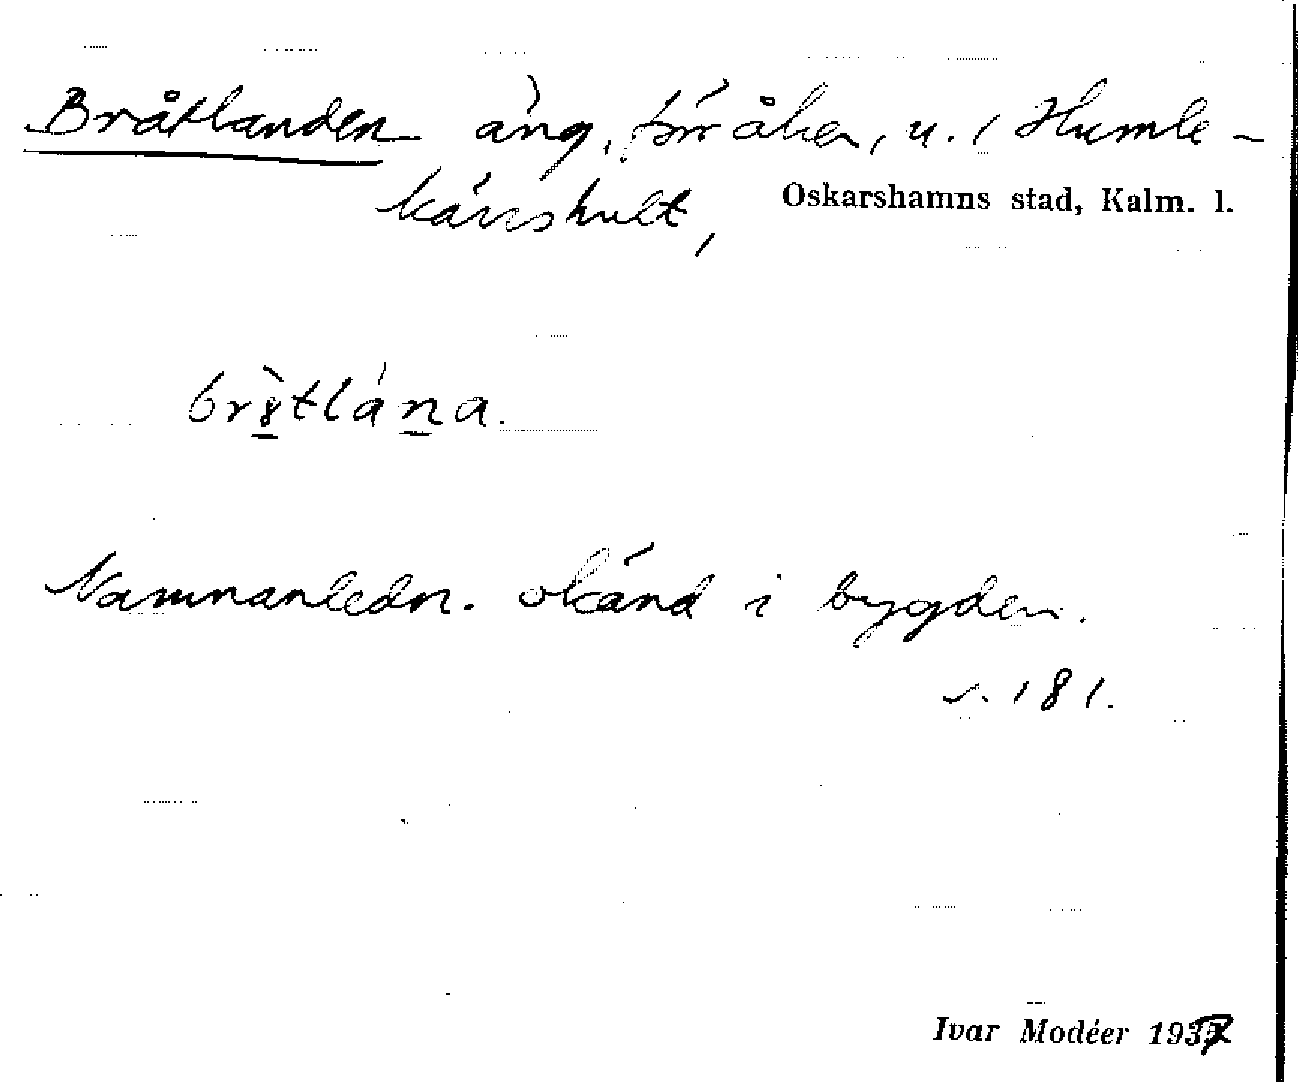 Bråtlanden äng, förr åker, u. / Humle-
kärrshult,
Oskarshamns stad, Kalm. l.
br8̀tlána.
Namnanledn. okänd i bygden.
s. 181.
Ivar Modéer 1937